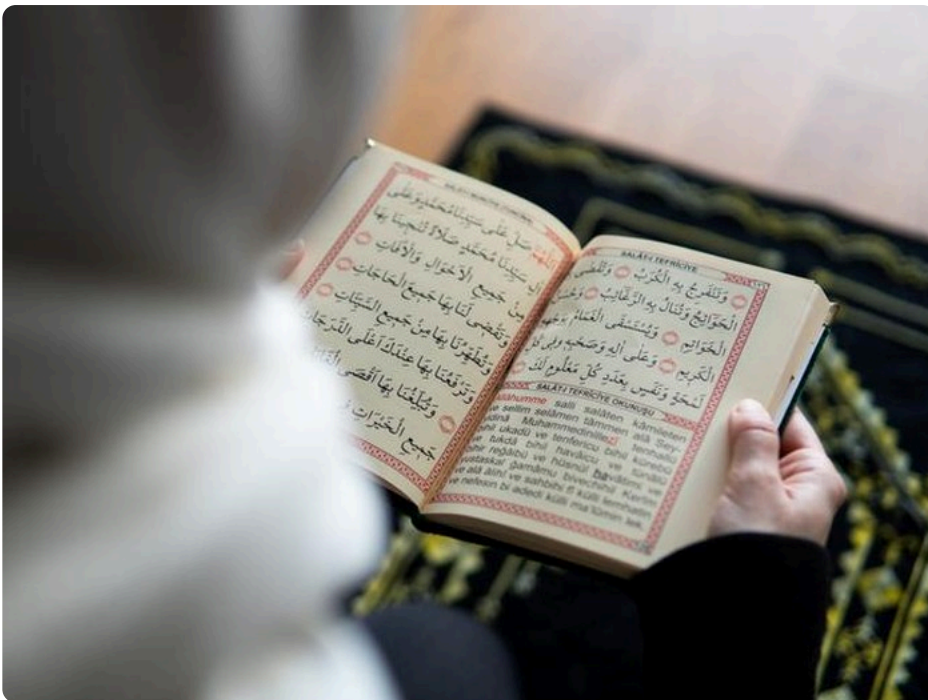 صَلِّ عَلٰى سَيِّدِنَا مُحَمَّدٍ وَعَلٰى
سَيِّدِنَا مُحَمَّدٍ صَلَاةً تُنْجِينَا بِهَا
جَمِيعِ الْاَحْوَالِ وَالْاٰفَاتِ
وَتَقْضِى لَنَا بِهَا جَمِيعَ الْحَاجَاتِ
وَتُطَهِّرُنَا بِهَا مِنْ جَمِيعِ السَّيِّئَاتِ
وَتَرْفَعُنَا بِهَا عِنْدَكَ اَعْلٰى الدَّرَجَاتِ
وَتُبَلِّغُنَا بِهَا اَقْصَى
جَمِيعِ الْخَيْرَاتِ
SALÂT-I TEFRÎCİYE
وَتَنْفَرِجُ بِهِ الْكُرَبُ وَتُقْضٰى
الْحَوَائِجُ وَتُنَالُ بِهِ الرَّغَائِبُ
الْخَوَاتِيمِ وَيُسْتَسْقَى الْغَمَامُ
الْكَرِيمِ وَعَلٰى اٰلِهِ وَصَحْبِهِ فِى كُلِّ
لَمْحَةٍ وَنَفَسٍ بِعَدَدِ كُلِّ مَعْلُومٍ لَكَ
SALÂT-I TEFRÎCİYE OKUNUŞU
salli salâten kâmileten
ve sellim selâmen tâmmen alâ Sey-
Muhammedinillezî tenhallu
bihil ukadü ve tenfericu bihil kürebü
ve tukdâ bihil havâicu ve tünâlü
bihir reğâibü ve hüsnül havâtimi ve
yustaskal ğamâmu bivechihil Kerîm
ve alâ âlihî ve sahbihî fî külli lemhatin
ve nefesin bi adedi külli ma'lûmin lek.